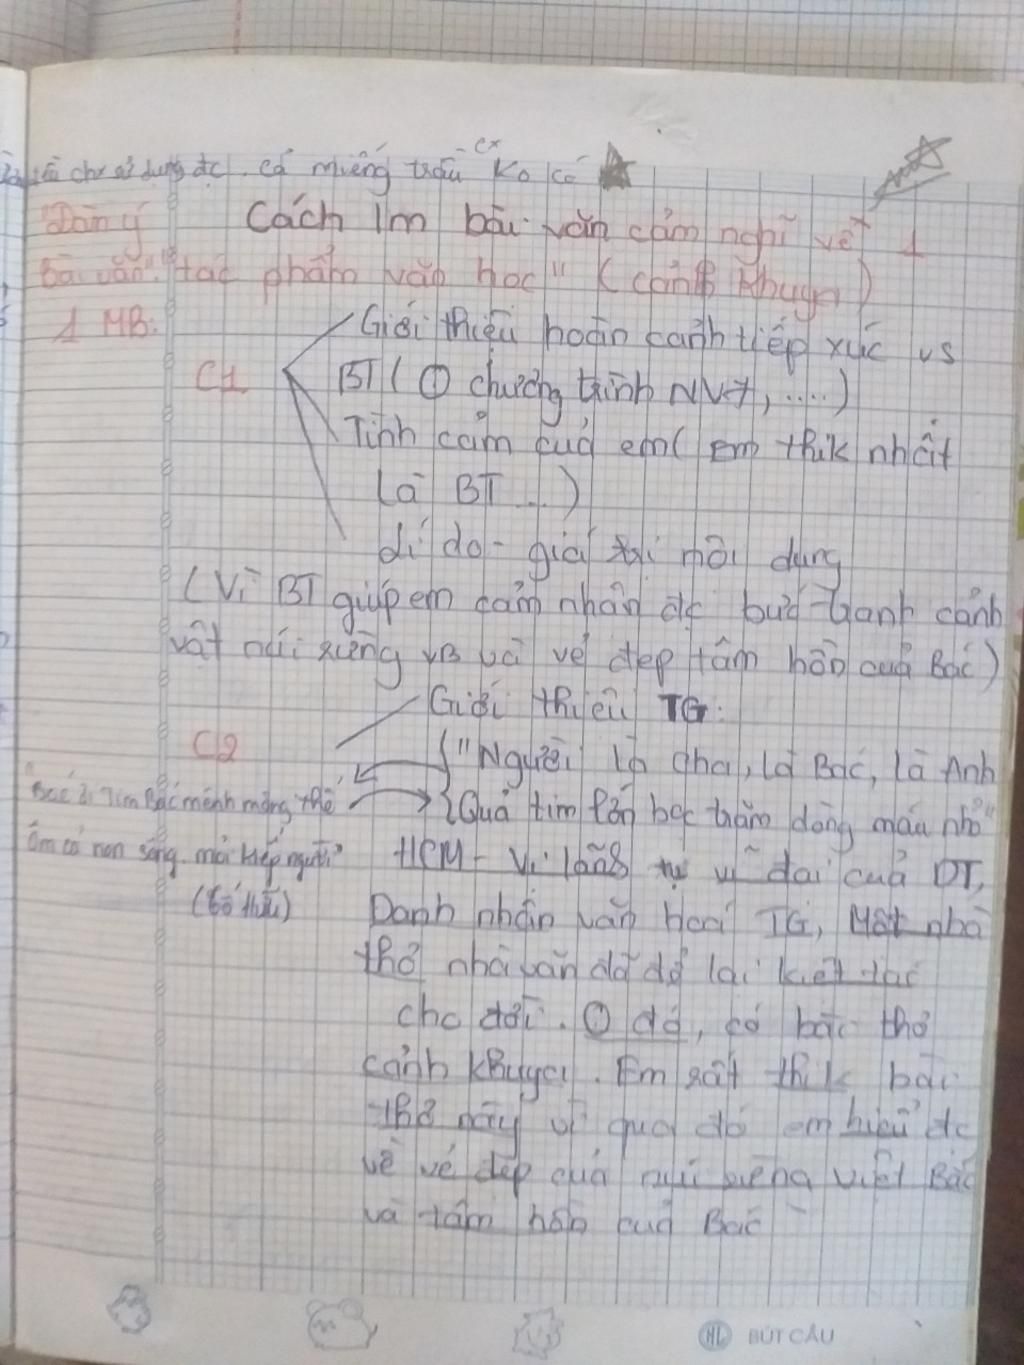 đc. cả miếng trầu cx ko có
Dàn ý Cách lm bài văn cảm nghĩ về 1
bài văn "tác phẩm văn học" (cảnh khuya)
1 MB:
Giới thiệu hoàn cảnh tiếp xúc vs
C1 BT (O chương trình NV7, ....)
Tình cảm của em (Em thik nhất
là BT ...)
Lí do - giá trị nội dung
(Vì BT giúp em cảm nhận đc bức tranh cảnh
vật núi rừng VB và vẻ đẹp tâm hồn của Bác)
Giới thiệu TG:
C2
"Người là Cha, là Bác, là Anh
Quả tim lớn bọc trăm dòng máu nhỏ"
"Bác ơi Tim Bác mênh mông thế
Ôm cả non sông mọi kiếp người"
(Tố Hữu)
HCM - Vị lãng tụ vĩ đại của DT,
Danh nhân văn hoá TG, Một nhà
thơ nhà văn đã để lại kiệt tác
cho đời. O đó, có bài thơ
cảnh khuya. Em rất thik bài
thơ này vì qua đó em hiểu đc
về vẻ đẹp của núi rừng Việt Bắc
và tâm hồn của Bác
HL BÚT CÂU